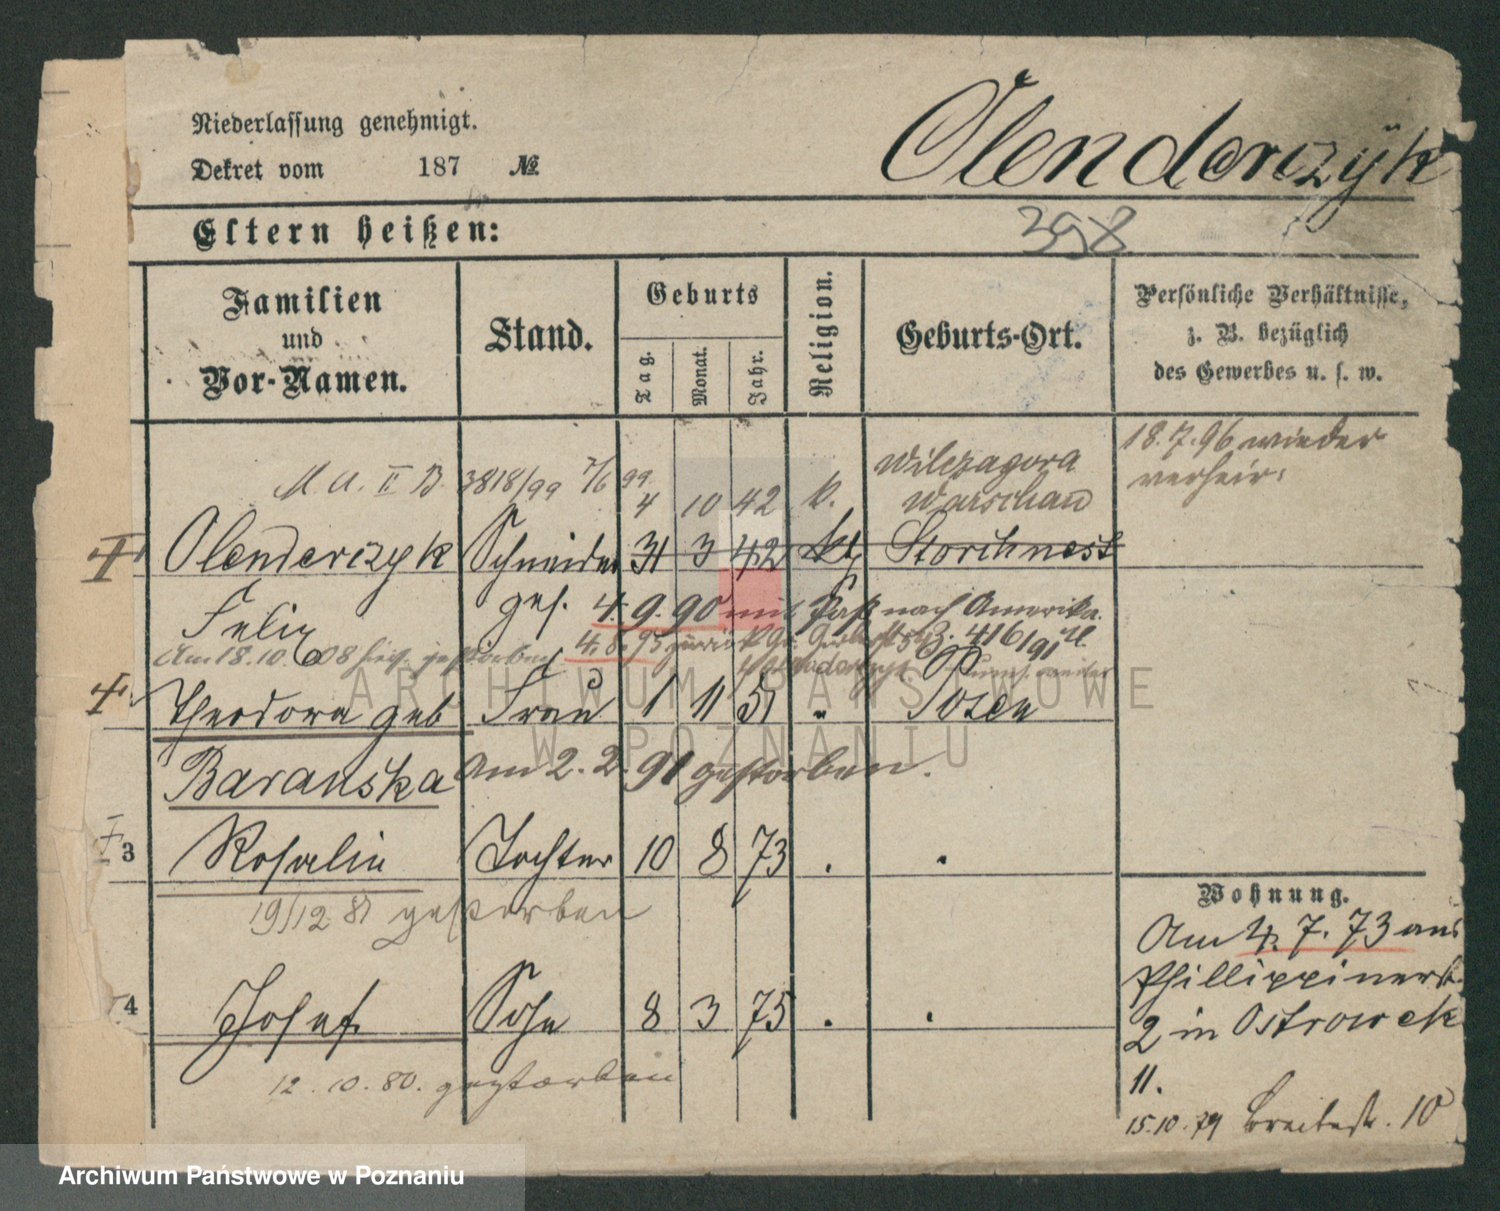 Niederlassung genehmigt.
Dekret vom 187 №
Olenderczyk
Eltern heißen:
398
Familien und Vor-Namen.
Stand.
Geburts
Tag.
Monat.
Jahr.
Religion.
Geburts-Ort.
Persönliche Verhältnisse,
z. B. bezüglich
des Gewerbes u. s. w.
18.7.96 wieder
verheir.
M. A. II B. 3818/99 7/6 99.
4 10 42 k. Wilczagora
Warschau
Olenderczyk Schneider 31 3 42 kt Storchnest
Felix ges. 4.9.90 mit Paß nach Amerika.
Am 18.10.08 hier gestorben 4.8.95 zurück 416/91
Theodora geb Frau 1 11 51 " Posen
Baranska Am 2.2.91 gestorben.
3 Rosalie Tochter 10 8 73 . .
19/12 81 gestorben
4 Josef Sohn 8 3 75 . .
12.10.80. gestorben
Wohnung.
Am 4.7.73 aus
Phillippinerst.
2 in Ostrowek
11.
15.10.79 Breitestr. 10
ARCHIWUM PAŃSTWOWE
W POZNANIU
Archiwum Państwowe w Poznaniu